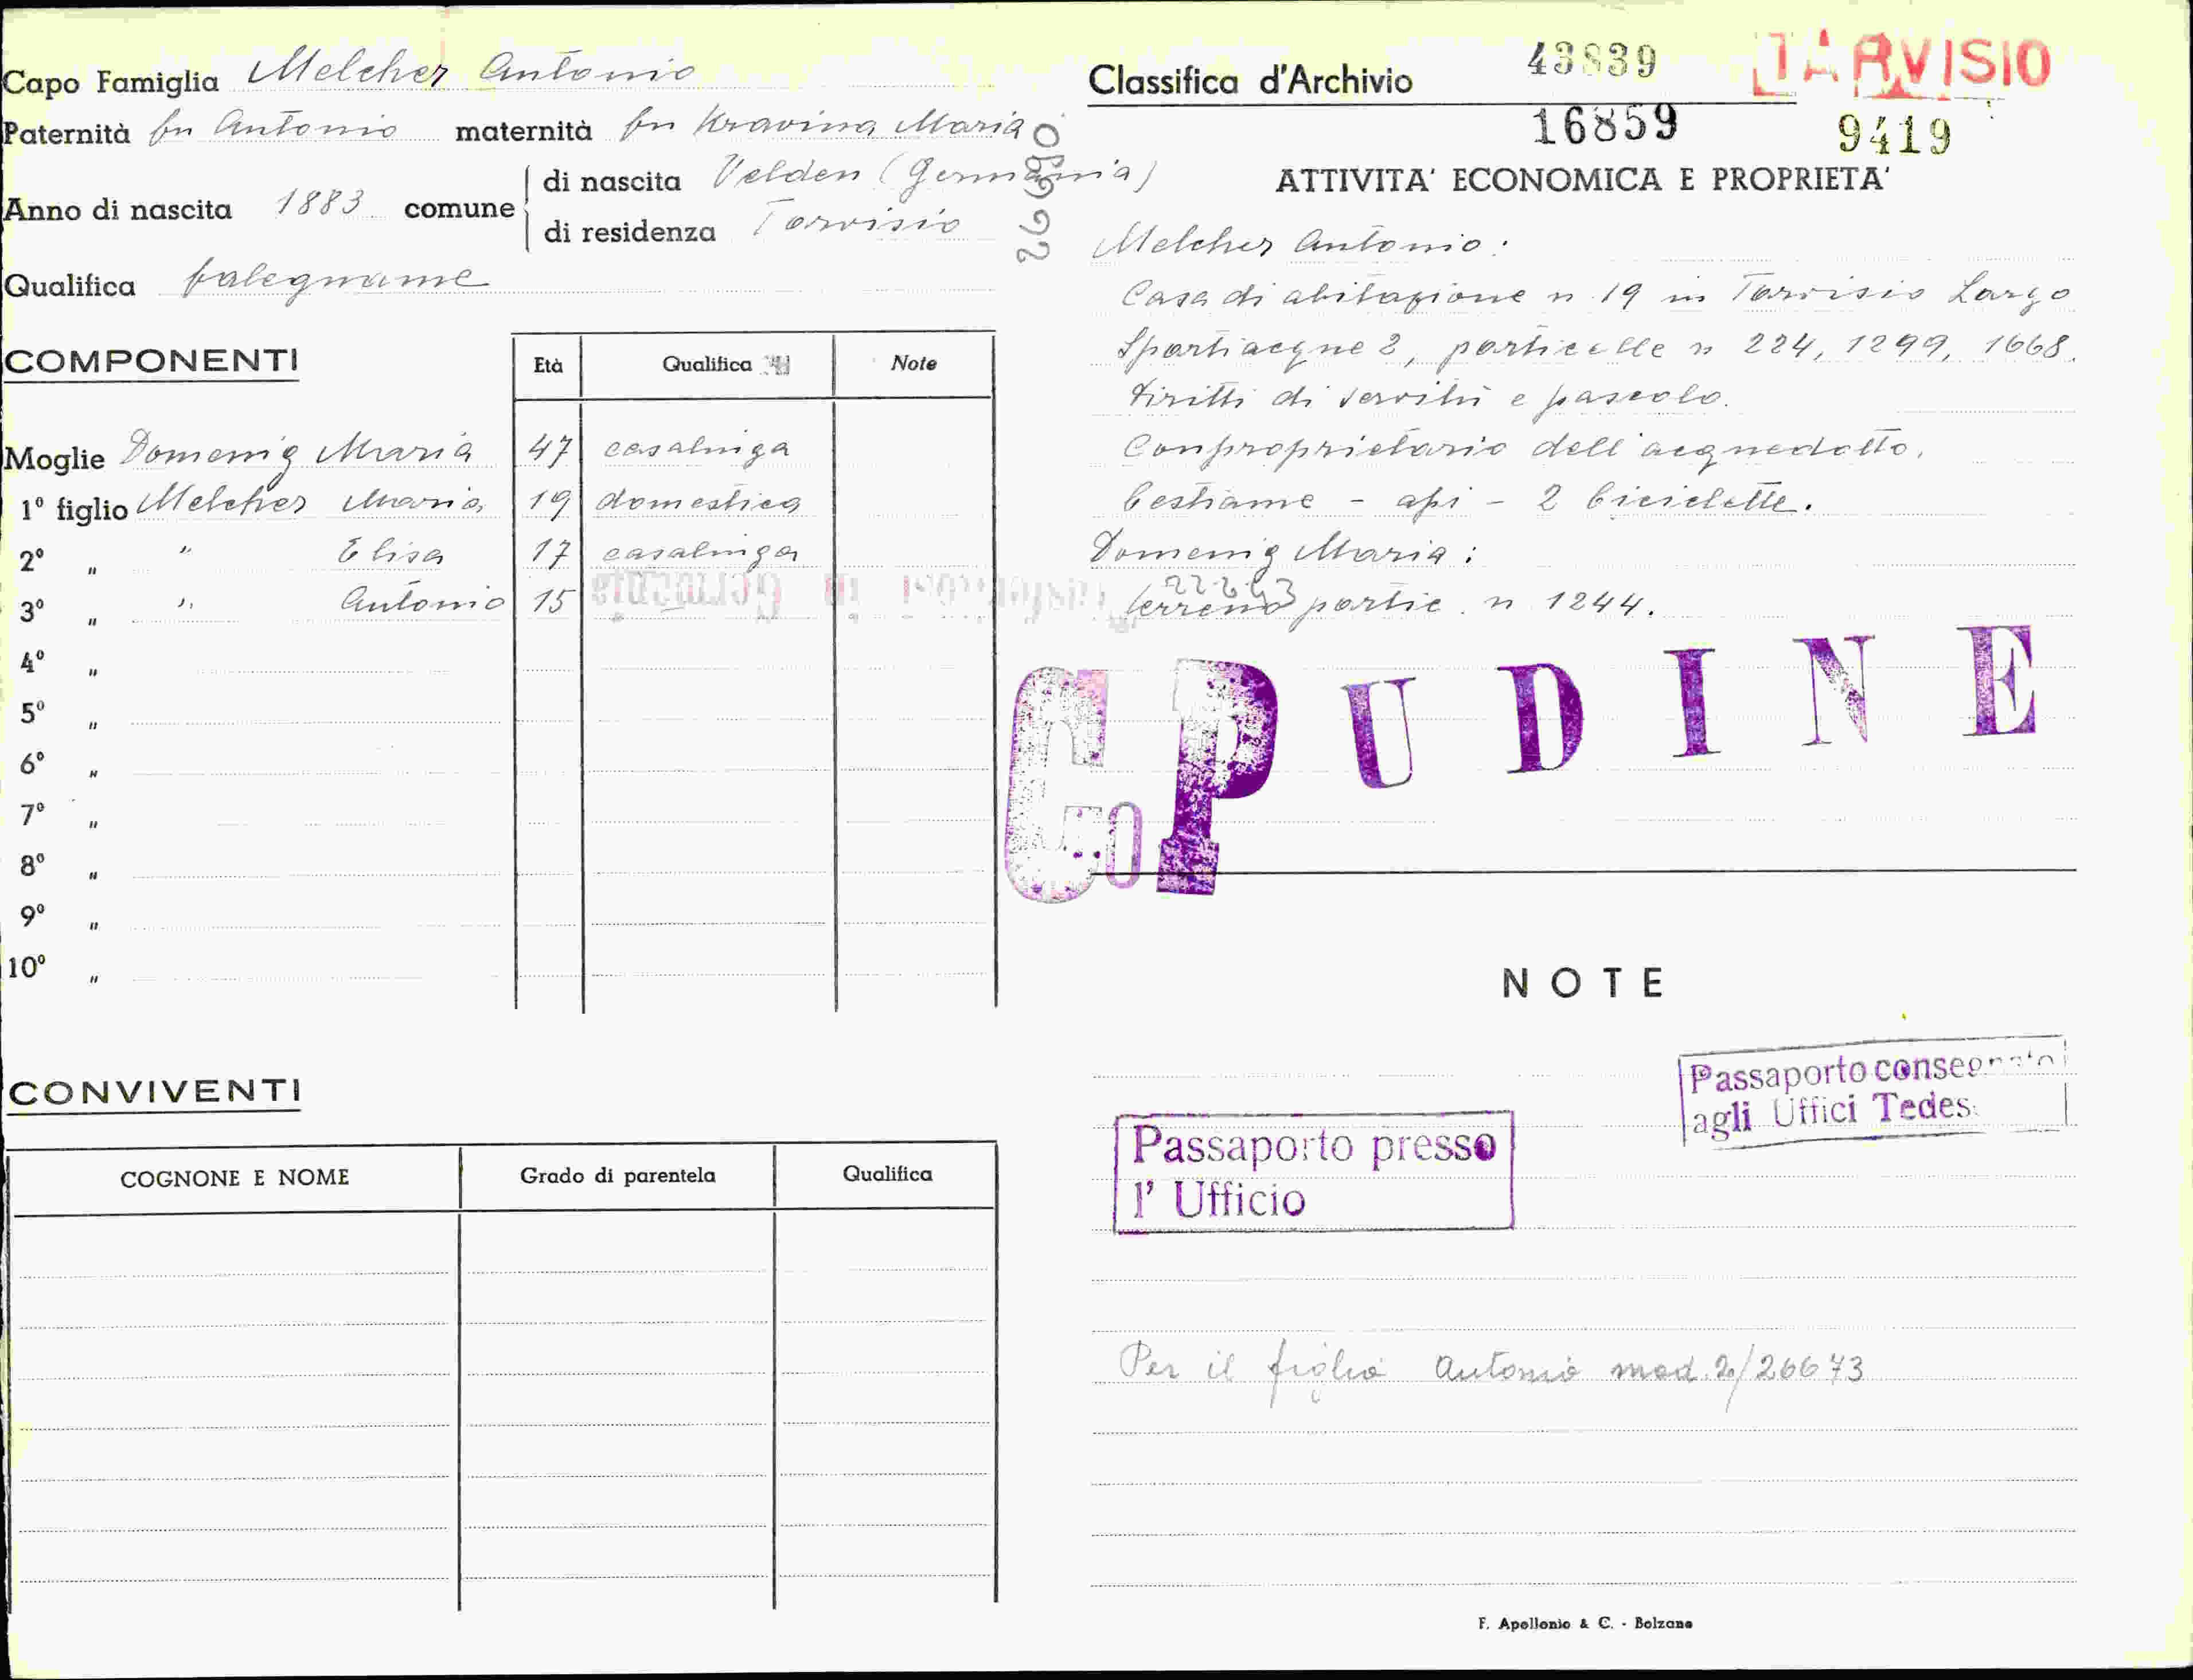 Capo Famiglia Melcher Antonio
Paternità fu Antonio maternità fu Kravina Maria
Anno di nascita 1883 comune
di nascita Velden (Germania)
di residenza Tarvisio
Qualifica falegname
COMPONENTI Età Qualifica Note
Moglie Domenig Maria 47 casalinga
1º figlio Melcher Maria 19 domestica
2º " " Elisa 17 casalinga
3º " " Antonio 15
4º "
5º "
6º "
7º "
8º "
9º "
10º "
CONVIVENTI
COGNONE E NOME Grado di parentela Qualifica
Classifica d'Archivio 43839 TARVISIO
16859 9419
ATTIVITA' ECONOMICA E PROPRIETA'
Melcher Antonio:
Casa di abitazione n 19 in Tarvisio Largo
Spartiacque 2, particelle n 224, 1299, 1668.
diritti di servitù e pascolo.
Comproprietario dell'acquedotto.
bestiame - api - 2 biciclette.
Domenig Maria:
terreno partic. n 1244.
P UDINE
NOTE
Passaporto
agli Uffici
Passaporto presso
l' Ufficio
Per il figlio Antonio mod. 2/26673
F. Apollonio & C. - Bolzano